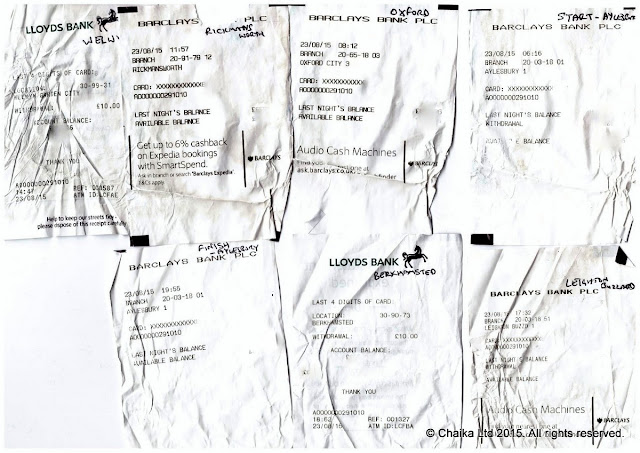 LLOYDS BANK
LAST 4 DIGITS OF CARD:
30-99-31
WITHDRAWAL: £10.00
ACCOUNT BALANCE:
THANK YOU
A0000000291010
REF: 001587
23/08/15 ATM ID:LCFAE
Help to keep our streets
please dispose of this receipt carefully
BARCLAYS PLC
RICKMANSWORTH
23/08/15 11:57
BRANCH 20-91-79 12
RICKMANSWORTH
CARD: XXXXXXXXXXXX
A0000000291010
LAST NIGHT'S BALANCE
AVAILABLE BALANCE
Get up to 6% cashback
on Expedia bookings
with SmartSpend.
Ask in branch or search 'Barclays Expedia'.
T&Cs apply.
BARCLAYS
OXFORD
BARCLAYS BANK PLC
23/08/15 08:12
BRANCH 20-65-18 03
OXFORD CITY 3
CARD: XXXXXXXXXXXX
A0000000291010
LAST NIGHT'S BALANCE
AVAILABLE BALANCE
Audio Cash Machines
ask.barclays.co.uk
BARCLAYS
START - AYLESBURY
BARCLAYS BANK PLC
23/08/15 06:16
BRANCH 20-03-18 01
AYLESBURY 1
CARD: XXXXXXXXXXXX
A0000000291010
LAST NIGHT'S BALANCE
WITHDRAWAL
BALANCE
FINISH
- AYLESBURY
BARCLAYS BANK PLC
23/08/15 19:55
BRANCH 20-03-18 01
AYLESBURY 1
CARD: XXXXXXXXXXXX
A0000000291010
LAST NIGHT'S BALANCE
AVAILABLE BALANCE
LLOYDS BANK
BERKHAMSTED
LAST 4 DIGITS OF CARD:
LOCATION: 30-90-73
BERKHAMSTED
WITHDRAWAL: £10.00
ACCOUNT BALANCE:
THANK YOU
A0000000291010
18:52 REF: 001027
23/08/15 ATM ID:LCFBA
LEIGHTON
BUZZARD
BARCLAYS BANK PLC
23/08/15 17:32
BRANCH 20-03-18 51
LEIGHTON BUZZD 1
CARD: XXXXXXXXXXXX
A0000000291010
LAST NIGHT'S BALANCE
WITHDRAWAL
AVAILABLE BALANCE
Audio Cash Machines
BARCLAYS
© Chaika Ltd 2015. All rights reserved.